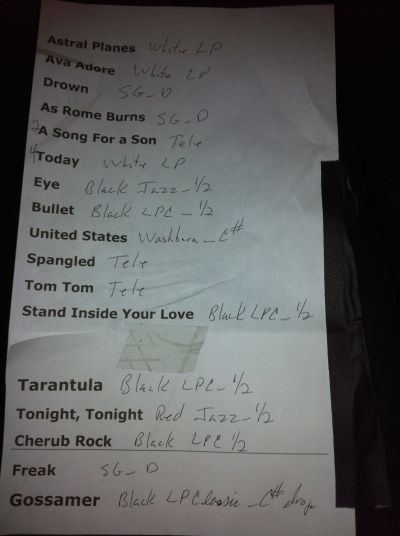 Astral Planes White LP
Ava Adore White LP
Drown SG-D
As Rome Burns SG-D
2 A Song For a Son Tele
4 Today White LP
Eye Black Jazz-1/2
Bullet Black LPC-1/2
United States Washburn-C#
Spangled Tele
Tom Tom Tele
Stand Inside Your Love Black LPC-1/2
Tarantula Black LPC-1/2
Tonight, Tonight Red Jazz-1/2
Cherub Rock Black LPC 1/2
Freak SG-D
Gossamer Black LPClassic-C# drop